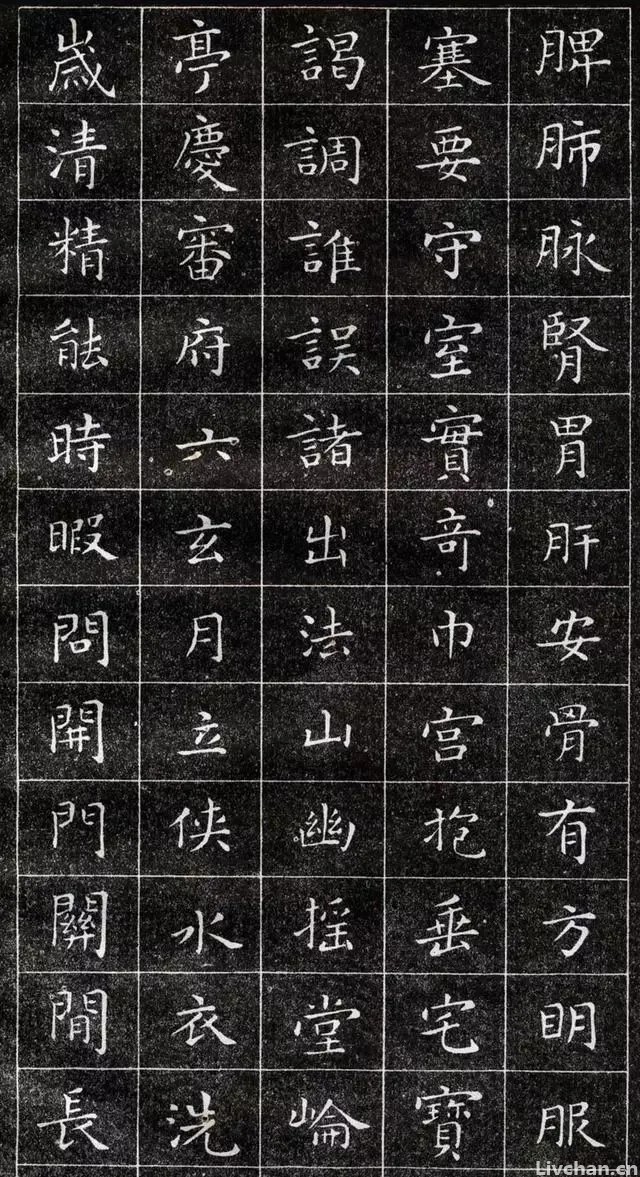 脾肺脉腎胃肝安骨有方明服
塞要守室實奇巾宫抱垂宅寶
謁調誰誤諸出法山幽摇堂崘
亭慶審府六玄月立侠水衣洗
嵗清精能時暇問開門關閒長
Livchan.cn